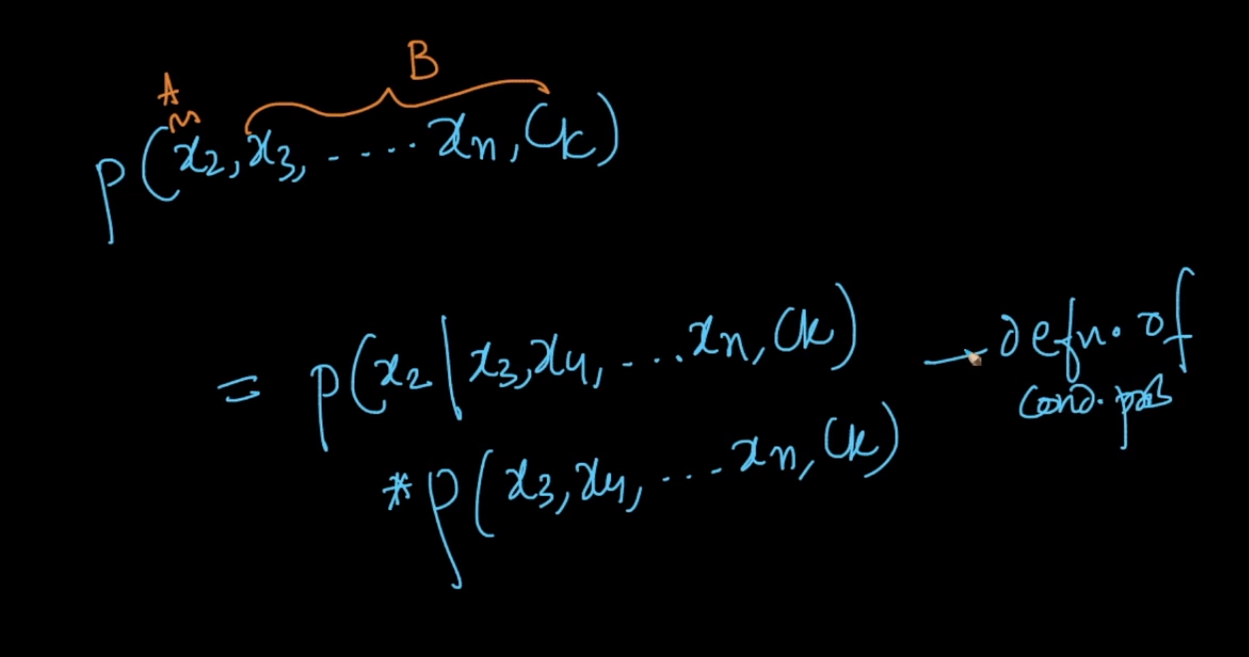 A B
P(x₂, x₃, ..... xₙ, Cₖ)
= P(x₂ | x₃, x₄, .... xₙ, Cₖ) → Defn. of
cond. prob
* P(x₃, x₄, .... xₙ, Cₖ)